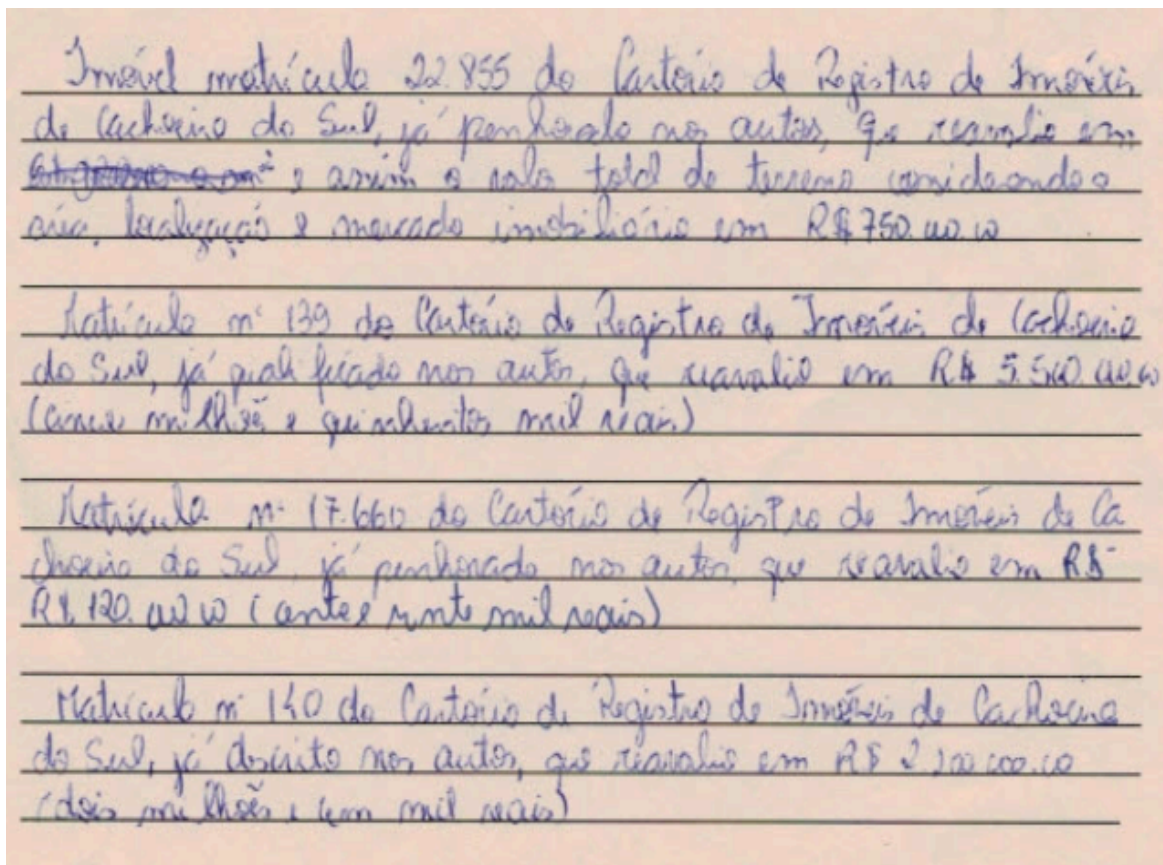 Imóvel matrícula 22.855 do Cartório de Registro de Imóveis
de Cachoeira do Sul, já penhorado nos autos, que reavalio em
e assim o valor total do terreno considerando a
área, localização e mercado imobiliário em R$ 750.000.00
Matrícula nº 139 do Cartório de Registro de Imóveis de Cachoeira
do Sul, já qualificado nos autos, que reavalio em R$ 5.500.000.00
(cinco milhões e quinhentos mil reais)
Matrícula nº 17.660 do Cartório de Registro de Imóveis de Ca
choeira do Sul, já penhorado nos autos, que reavalio em R$
R$ 120.000.00 (cento e vinte mil reais)
Matrícula nº 140 do Cartório de Registro de Imóveis de Cachoeira
do Sul, já descrito nos autos, que reavalio em R$ 2.100.000.00
(dois milhões e cem mil reais)